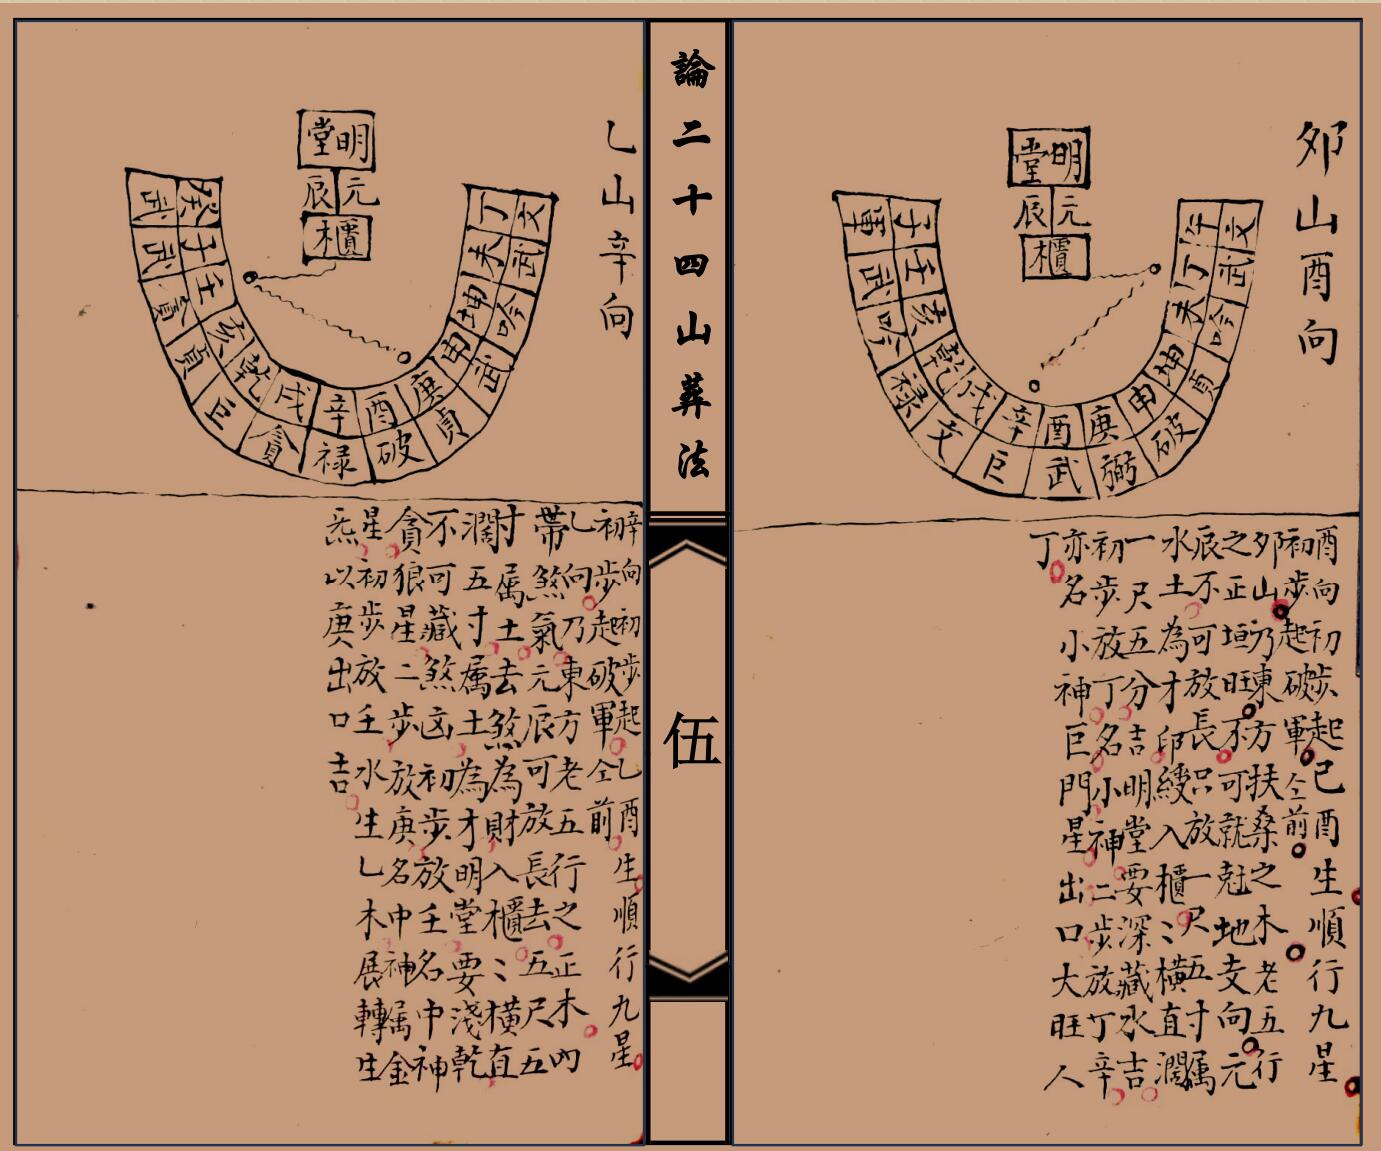 論二十四山葬法
伍
夘山酉向
明堂
元辰
櫃
午丁未坤申庚酉辛戌乾亥壬子
文武吟貞破弼武巨文禄吟武軍
酉向初步起巳酉生順行九星
初步起破軍仝前
夘山乃東方扶桑之木老五行
之正垣旺不可就尅地支向元
辰不可放長只放一尺五寸属
水土為才印綬入櫃〻橫直濶
一尺五分吉明堂要深藏水吉
初步放丁名小神二步放丁辛
亦名小神巨門星出口大旺人
丁
乙山辛向
明堂
元辰
櫃
丁未坤申庚酉辛戌乾亥壬子癸
文武吟武貞破禄貪巨貞貪武武
辛向初步起乙酉生順行九星
初步起破軍仝前
乙向乃東方老五行之正木內
帶煞氣元辰可放長去五尺五
寸属土去煞為財入櫃〻橫直
濶五寸属土為才明堂要淺乾
不可藏煞凶初步放壬名中神
貪狼星二步放庚名中神属金
星初步放壬水生乙木展轉生
炁以庚出口吉